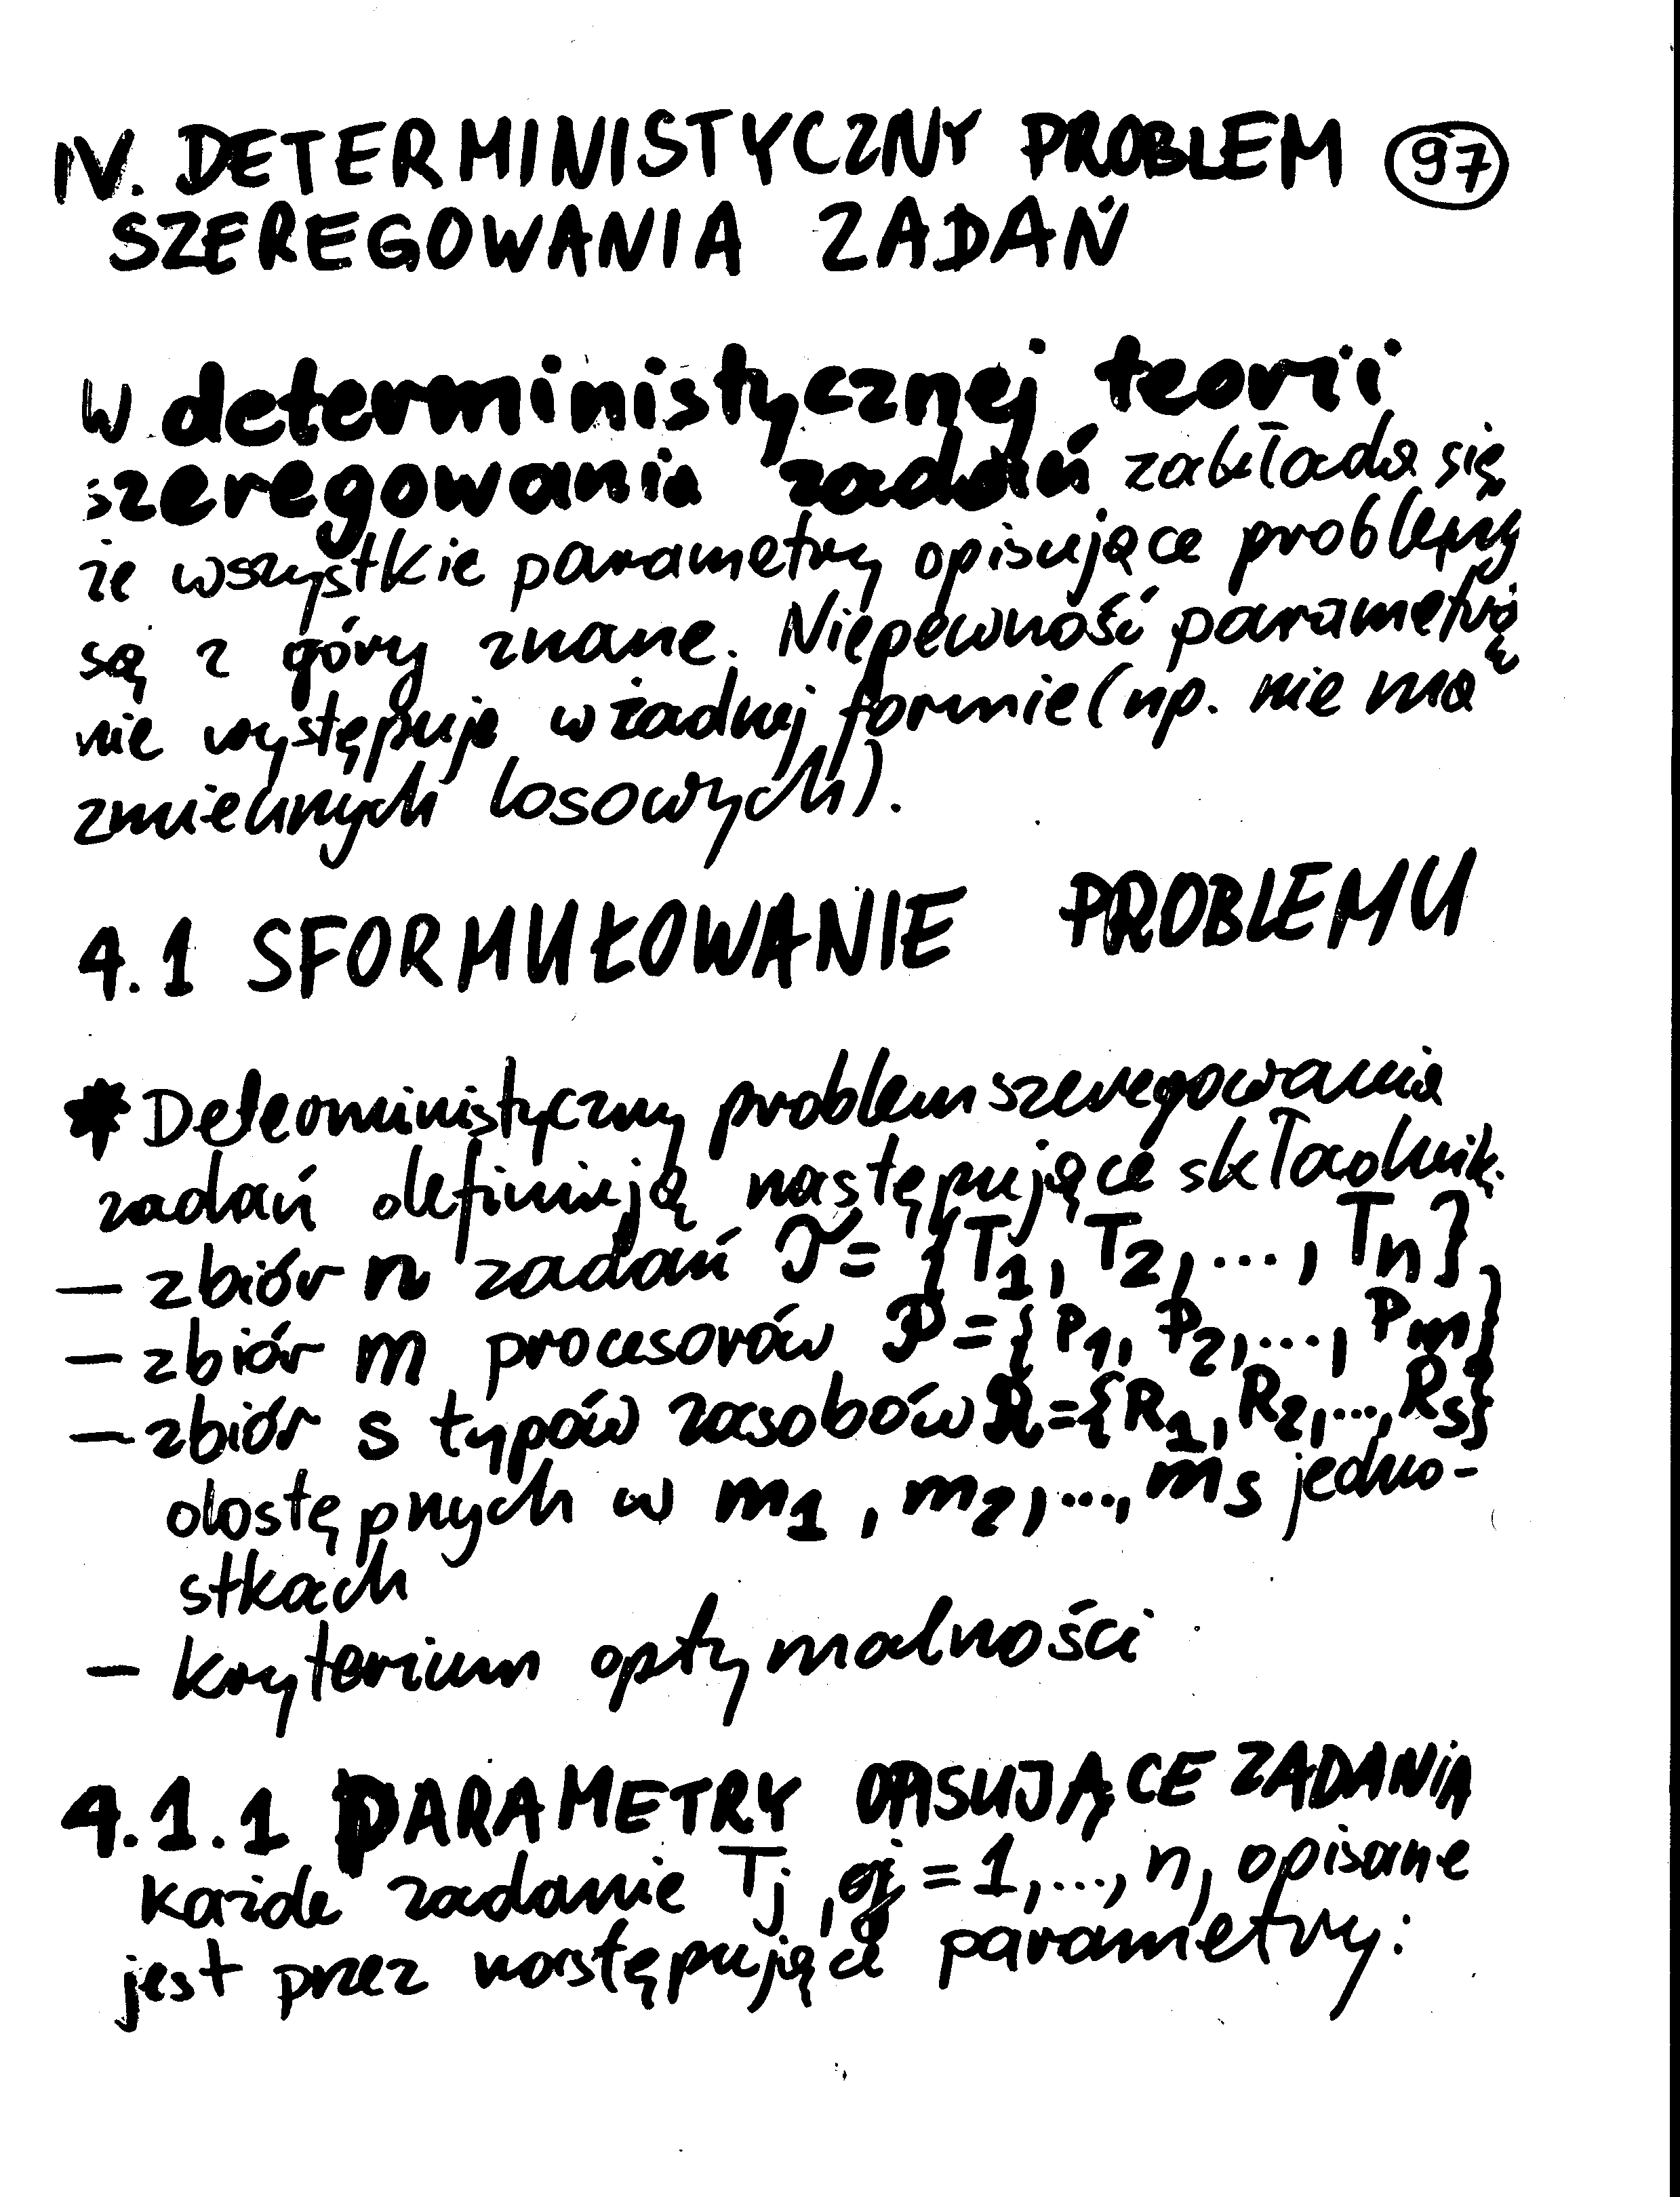 IV. DETERMINISTYCZNY PROBLEM 97
SZEREGOWANIA ZADAŃ
W deterministycznej teorii
szeregowania zadań zakłada się
że wszystkie parametry opisujące problemy
są z góry znane. Niepewność parametrów
nie występuje w żadnej formie (np. nie ma
zmiennych losowych).
4.1 SFORMUŁOWANIE PROBLEMU
* Deterministyczny problem szeregowania
zadań definiują następujące składniki.
— zbiór n zadań 𝒯 = {T₁, T₂, ..., Tn}
— zbiór m procesorów 𝒫 = {P₁, P₂, ..., Pm}
— zbiór s typów zasobów ℛ = {R₁, R₂, ..., Rs}
dostępnych w m₁, m₂, ..., ms jedno-
stkach
— kryterium optymalności
4.1.1 PARAMETRY OPISUJĄCE ZADANIA
Każde zadanie Tj, j = 1, ..., n, opisane
jest przez następujące parametry: